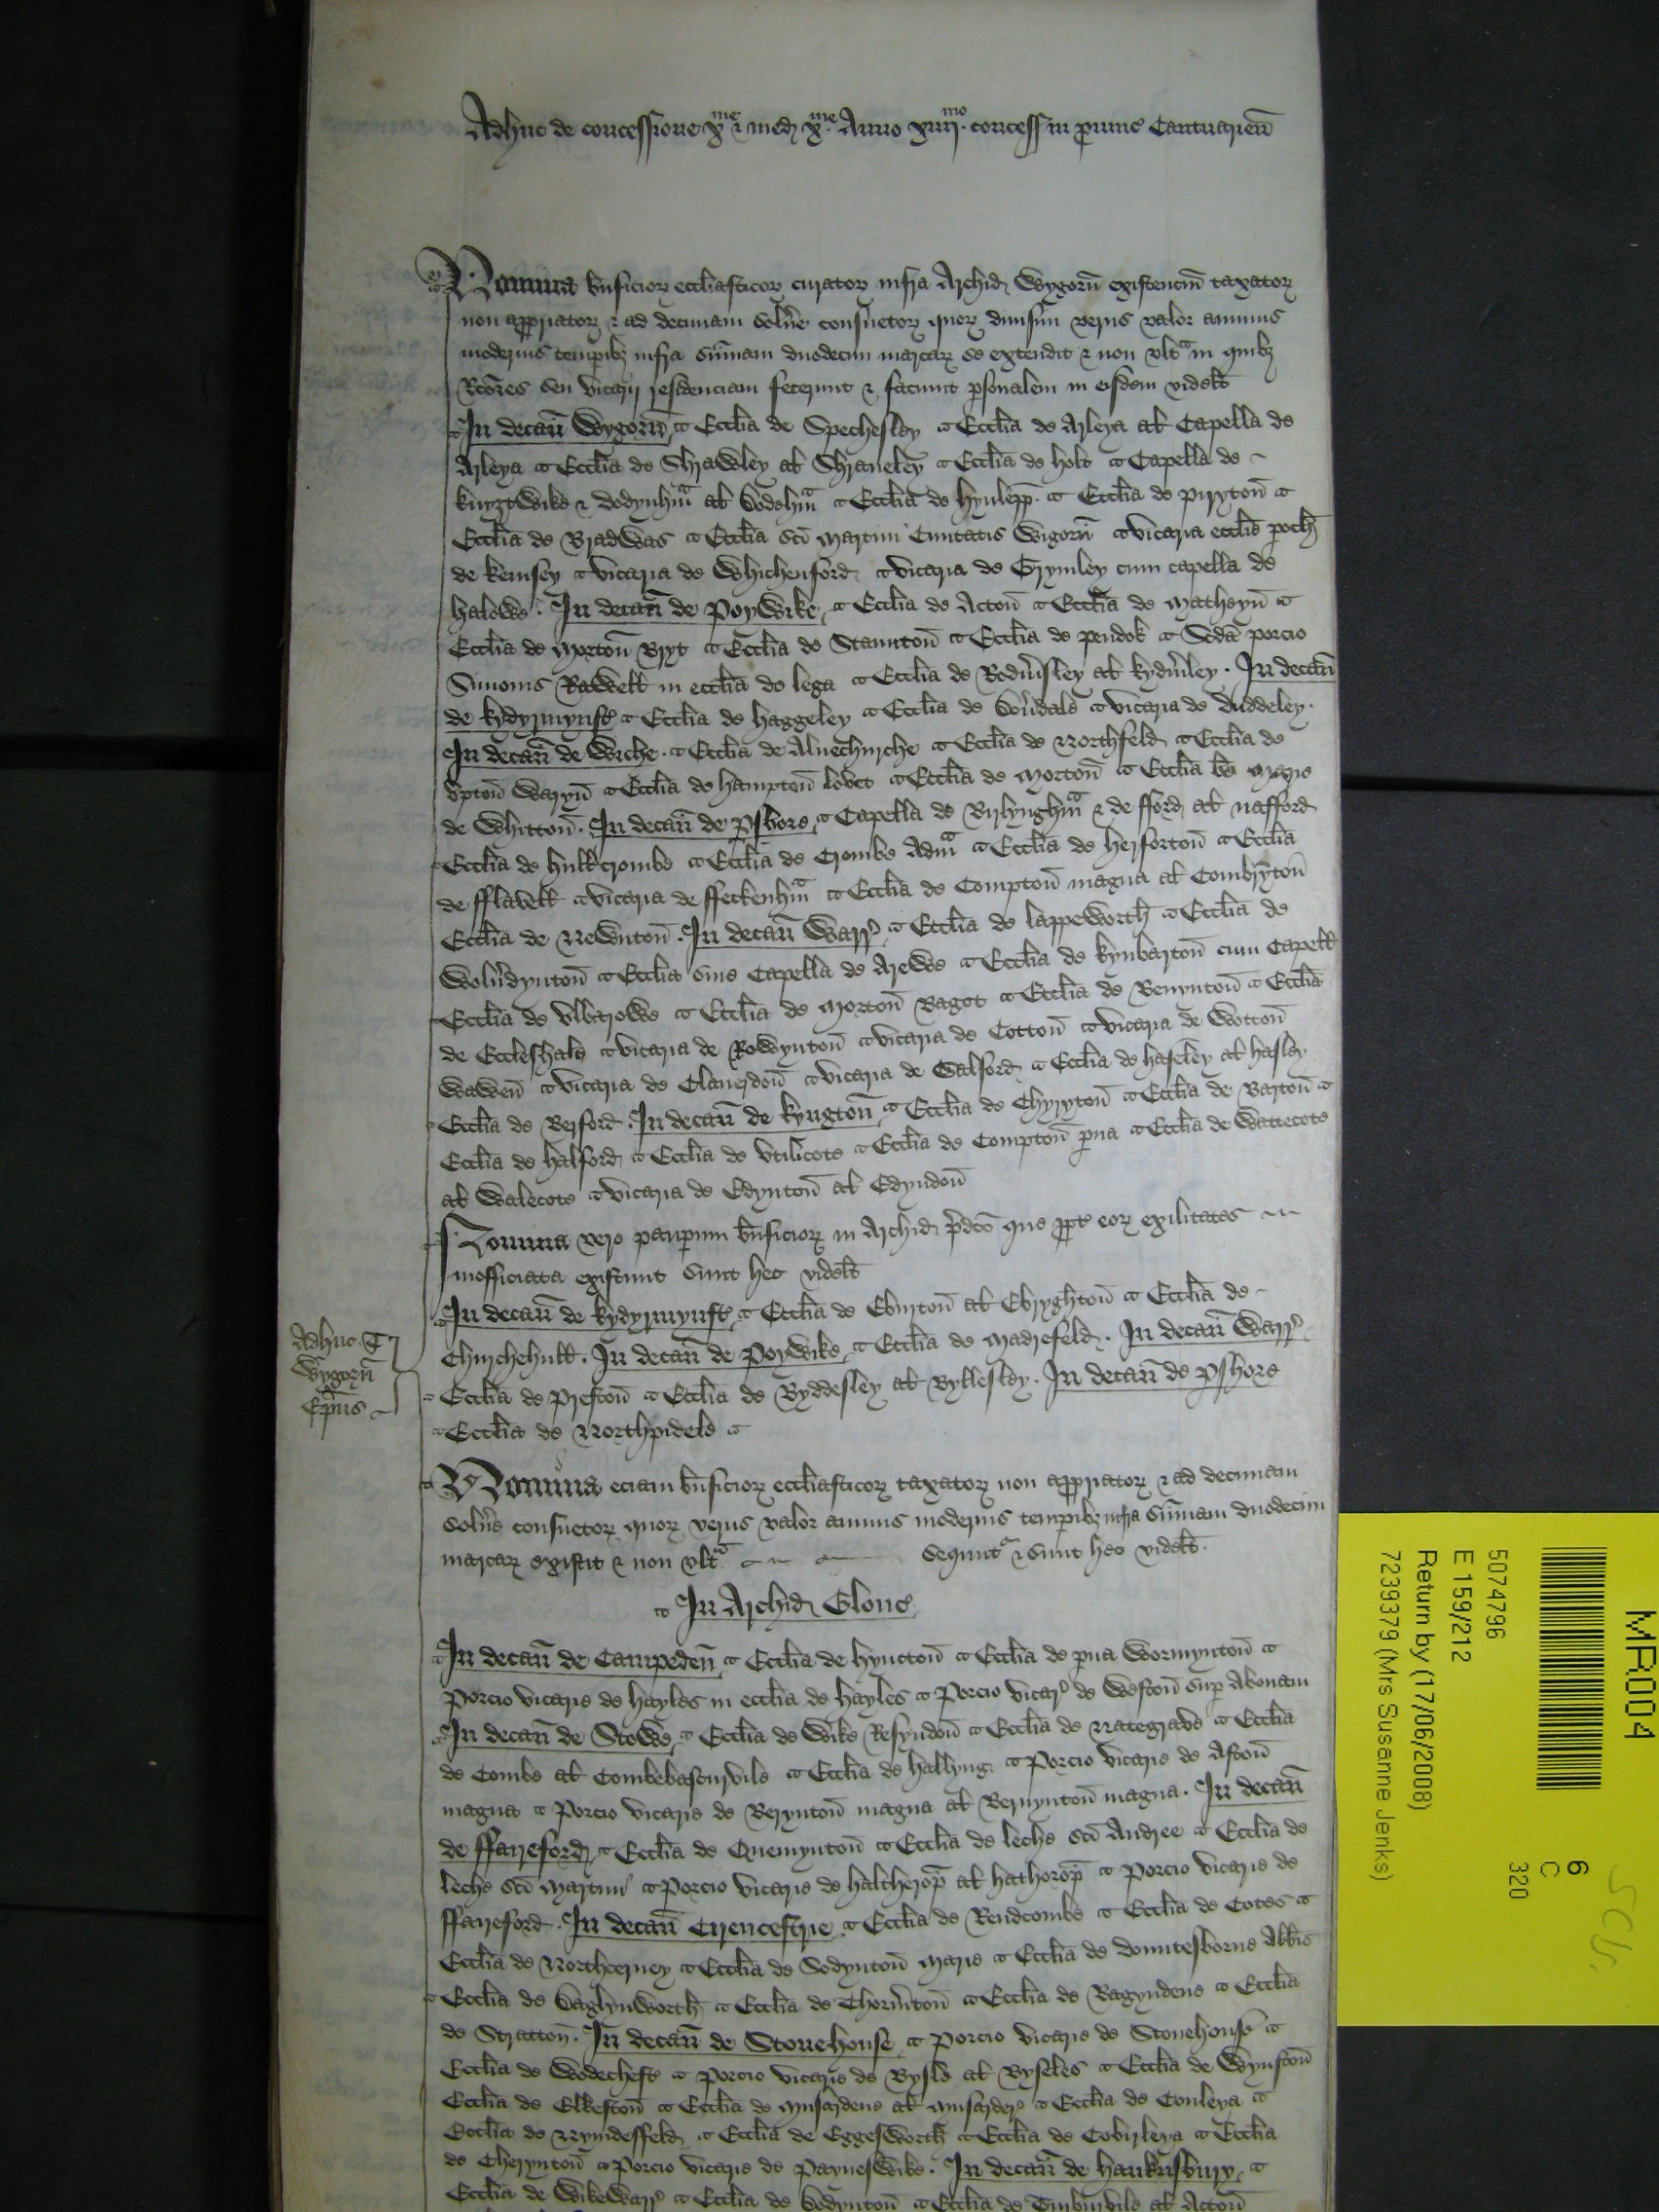 Adhuc de concessione xme & med xme Anno xiiiimo concess in provinc Cantuarien
Nomina bnficior ecclasticor curator infra Archid Wygorn existencium taxator
non appropriator & ad decimam solvere consuetor quor divisim verus valor annuus
modernis temporibz infra summam duodecim marcar se extendit & non ultra in quibz
Rectores seu vicarii residenciam fecerunt & faciunt personalem in eisdem videlt
In decan Wygorn Ecclia de Spechesley Ecclia de Arleya at Capella de
Arleya Ecclia de Shrawley at Shraueley Ecclia de holt Capella de
knyztwike & dodynhm at dodehm Ecclia de hynlepp Ecclia de piryton
Ecclia de Bradwas Ecclia sci martini Civitatis Wigorn vicaria ecclie poch
de kemsey vicaria de Whichenford vicaria de Grymley cum capella de
halowe In decan de Poywike Ecclia de Acton Ecclia de matheyn
Ecclia de morton Bryt Ecclia de Staunton Ecclia de pendok Scda porcio
Simonis Rawell in ecclia de lega Ecclia de Rodmsley at kydmley In decan
de kydyrmynstr Ecclia de haggeley Ecclia de Doverdale vicaria de duddeley
In decan de Wiche Ecclia de Aluechirche Ecclia de Northfeld Ecclia de
Upton Waryn Ecclia de hampton lovet Ecclia de morton Ecclia be marie
de Whitton In decan de Pshore Capella de Byrlynghm & de fford at nafford
Ecclia de hullcrombe Ecclia de Crombe Adm Ecclia de herforton Ecclia
de fflavell vicaria de ffeckenhm Ecclia de Compton magna at Combryton
Ecclia de Newnton In decan Warr Ecclia de lappeworth Ecclia de
Wolverdynton Ecclia sive Capella de Arewe Ecclia de kynbarton cum Capell
Ecclia de Ulbarowe Ecclia de morton Bagot Ecclia de Benynton Ecclia
de Eccleshale vicaria de Rowynton vicaria de Cotton vicaria de Wotton
Wawen vicaria de Clauerdon vicaria de Salford Ecclia de haseley at hasley
Ecclia de Berford In decan de kyngton Ecclia de Chyryton Ecclia de Barton
Ecclia de halford Ecclia de Utlicote Ecclia de Compton pva Ecclia de Wattecote
at Walecote vicaria de Edynton at Edyndon
Nomina vero pauperum bnficior in Archid predco que propt eor exilitates
inofficiata existunt sunt hec videlt
In decan de kydyrmynstr Ecclia de Eburton at Ebryghton Ecclia de
Chirchehull In decan de Poywike Ecclia de madresfeld In decan Warr
Adhuc C
Wygorn
Epus
Ecclia de Preston Ecclia de Byddesley at Byllesley In decan de Pshore
Ecclia de Northpidele
Nomina eciam bnficior ecclasticor taxator non appropriator & ad decimam
solvere consuetor quor verus valor annuus modernis temporibz infra summam duodecim
marcar existit & non ultra sequnt & sunt hec videlt
In Archid Glouc
In decan de Campeden Ecclia de hyncton Ecclia de pva Wormynton
Porcio vicarie de hayles in ecclia de hayles Porcio vicar de Weston sup Abonam
In decan de Stowe Ecclia de Wike Resyndon Ecclia de Nategrave Ecclia
de Combe at Combebaskervile Ecclia de hallyng Porcio vicarie de Aston
magna Porcio vicarie de Berynton magna at Bernynton magna In decan
de ffaireford Ecclia de Quenynton Ecclia de leche sci Andree Ecclia de
leche sci martini Porcio vicarie de haltherop at hathorop Porcio vicarie de
ffaireford In decan Cirencestrie Ecclia de Rendcombe Ecclia de Cotes
Ecclia de Northcerney Ecclia de Sodynton marie Ecclia de dountesborne Abbis
Ecclia de Daglynworth Ecclia de Thormton Ecclia de Bagyndene Ecclia
de Stratton In decan de Stonehouse porcio vicarie de Stonehouse
Ecclia de Wodechestr porcio vicarie de Bysle at Byseles Ecclia de Wynston
Ecclia de Elkeston Ecclia de musardene at musarder Ecclia de Couleya
Ecclia de Nymdesffeld Ecclia de Eggesworth Ecclia de Cobirleya Ecclia
de Cherynton Porcio vicarie de Payneswike In decan de haukisbury
Ecclia de Wikewarr Ecclia de Dodynton Ecclia de Turbirvile at Acton
MR004
5074796
E 159/212
Return by (17/06/2008)
7239379 (Mrs Susanne Jenks)
6
C
320